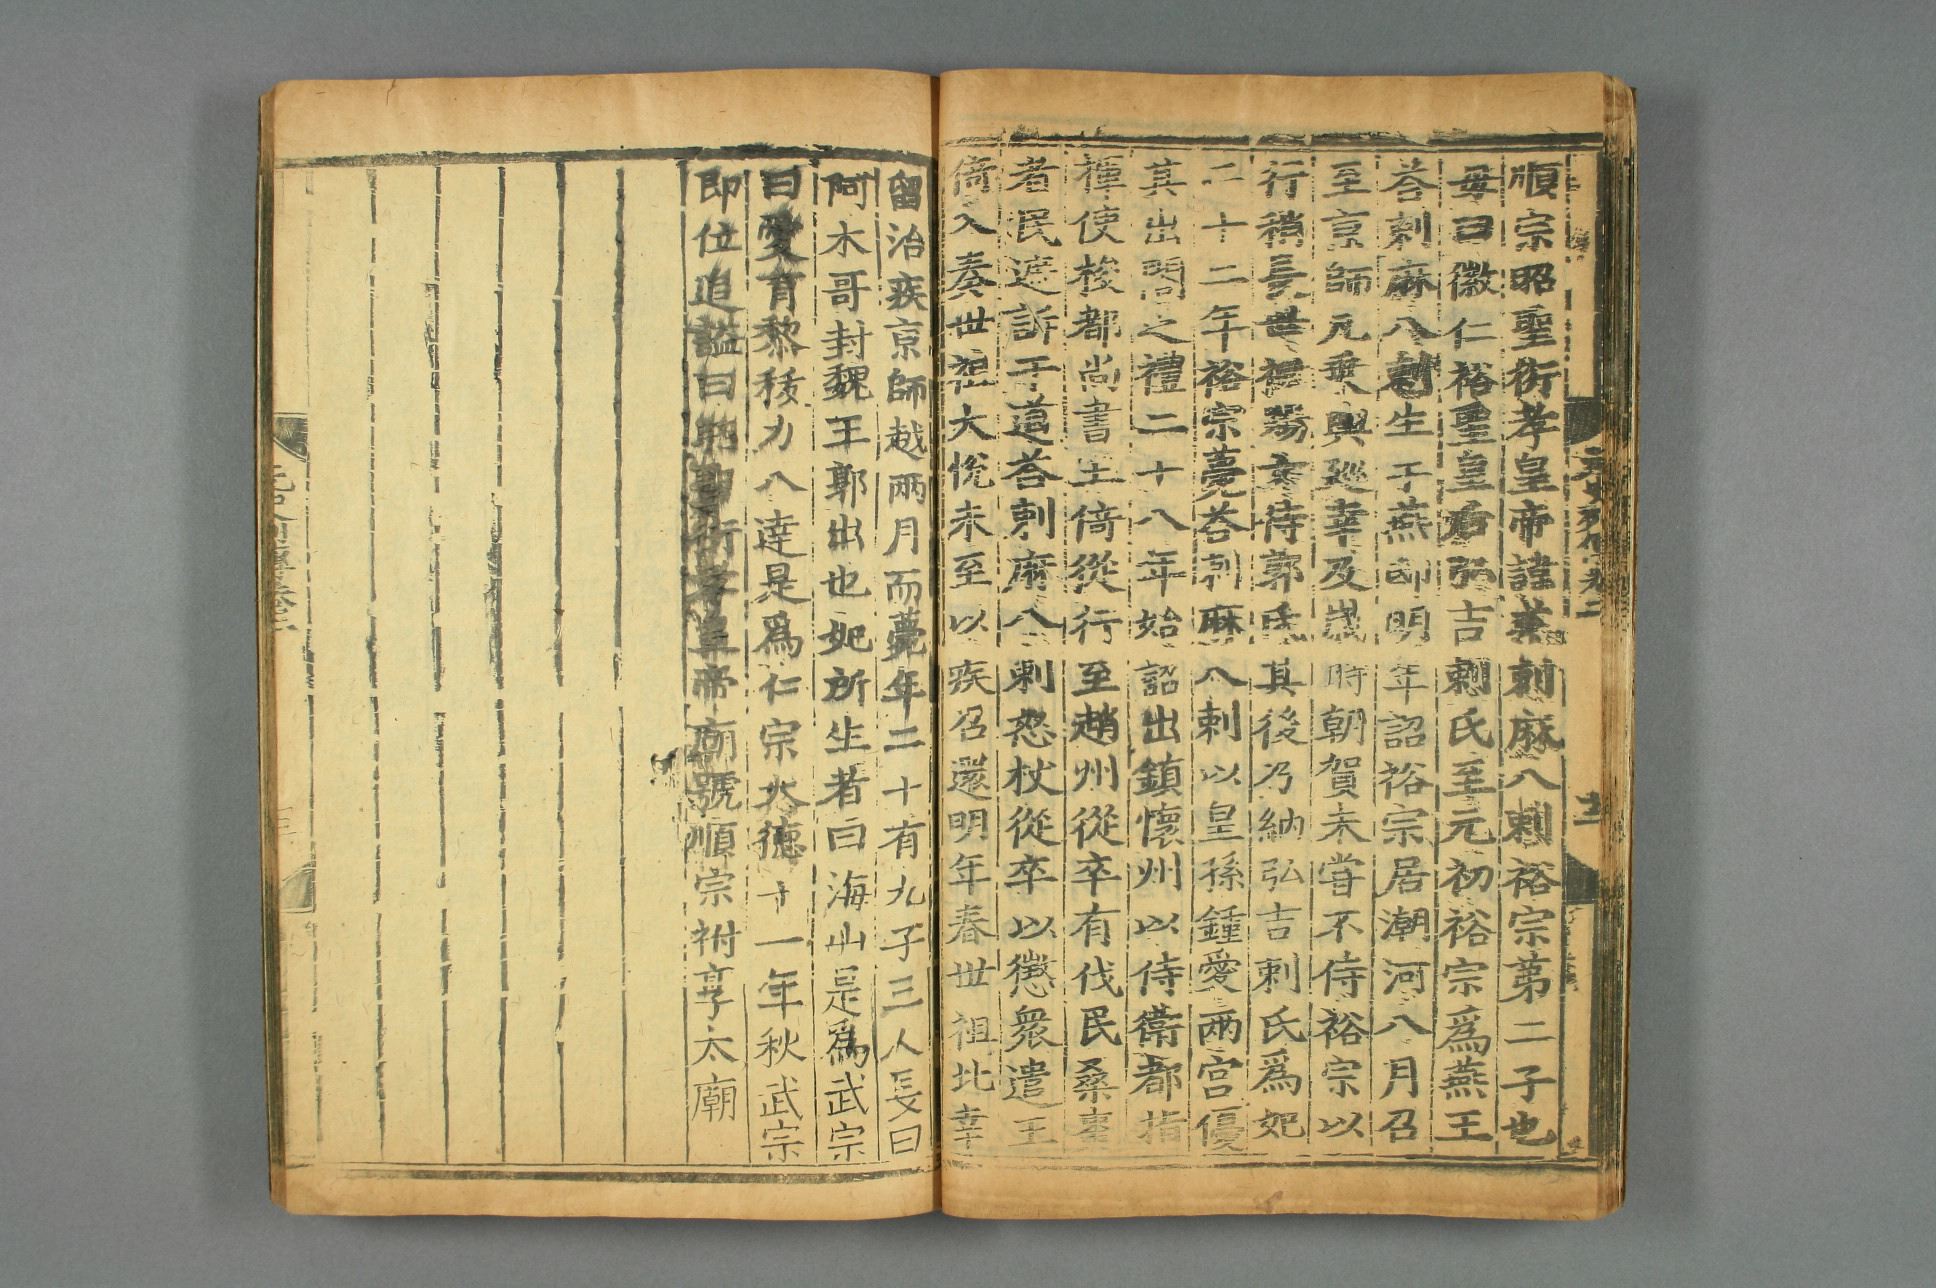 順宗昭聖衍孝皇帝諱荅剌麻八剌裕宗第二子也
母曰徽仁裕聖皇后弘吉剌氏至元初裕宗爲燕王
荅剌麻八剌生于燕邸明年詔裕宗居潮河八月召
至京師凡乗輿廵幸及歳時朝賀未甞不侍裕宗以
行稍長世祖賜女侍郭氏其後乃納弘吉剌氏爲妃
二十二年裕宗薨荅剌麻八剌以皇孫鍾愛兩宮優
其出閤之禮二十八年始詔出鎮懷州以侍衛都指
揮使梭都尚書王倚從行至趙州從卒有伐民桑棗
者民遮訴于道荅剌麻八剌怒杖從卒以懲衆遣王
倚入奏世祖大恱未至以疾召還明年春世祖北幸
留治疾京師越兩月而薨年二十有九子三人長曰
阿木哥封魏王郭出也妃所生者曰海山是爲武宗
曰愛育黎㧞力八達是爲仁宗大德十一年秋武宗
即位追謚曰昭聖衍孝皇帝廟號順宗祔享太廟
元史列傳卷二